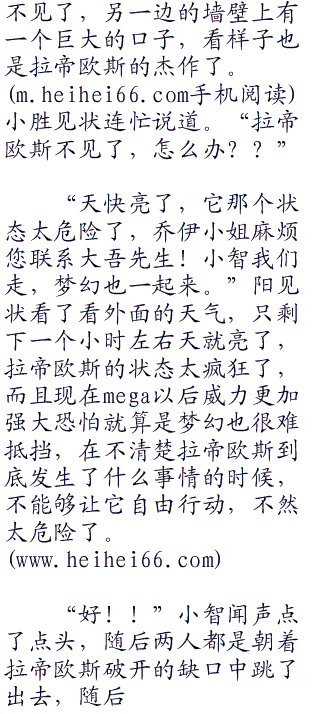 不见了，另一边的墙壁上有
一个巨大的口子，看样子也
是拉帝欧斯的杰作了。
(m.heihei66.com手机阅读)
小胜见状连忙说道。“拉帝
欧斯不见了，怎么办？？”
“天快亮了，它那个状
态太危险了，乔伊小姐麻烦
您联系大吾先生！小智我们
走，梦幻也一起来。”阳见
状看了看外面的天气，只剩
下一个小时左右天就亮了，
拉帝欧斯的状态太疯狂了，
而且现在mega以后威力更加
强大恐怕就算是梦幻也很难
抵挡，在不清楚拉帝欧斯到
底发生了什么事情的时候，
不能够让它自由行动，不然
太危险了。
(www.heihei66.com)
“好！！”小智闻声点
了点头，随后两人都是朝着
拉帝欧斯破开的缺口中跳了
出去，随后